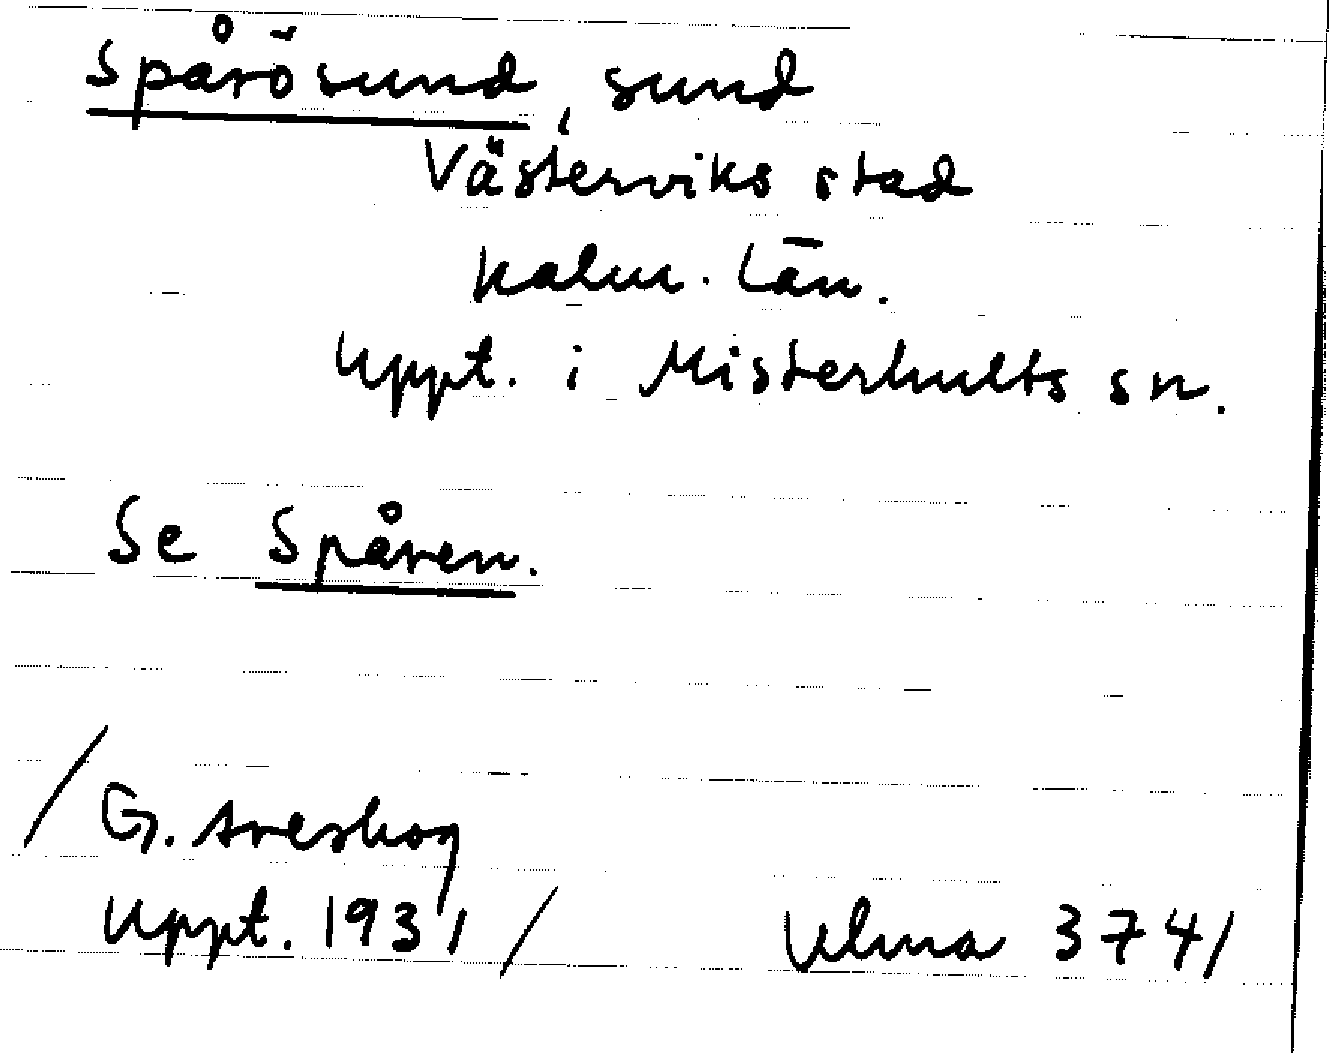 Spårösund, sund
Västerviks stad
Kalm. Län.
Uppt. i Misterhults sn.
Se Spåren.
/G. Areskog
Uppt. 1931/
Ulma 3741